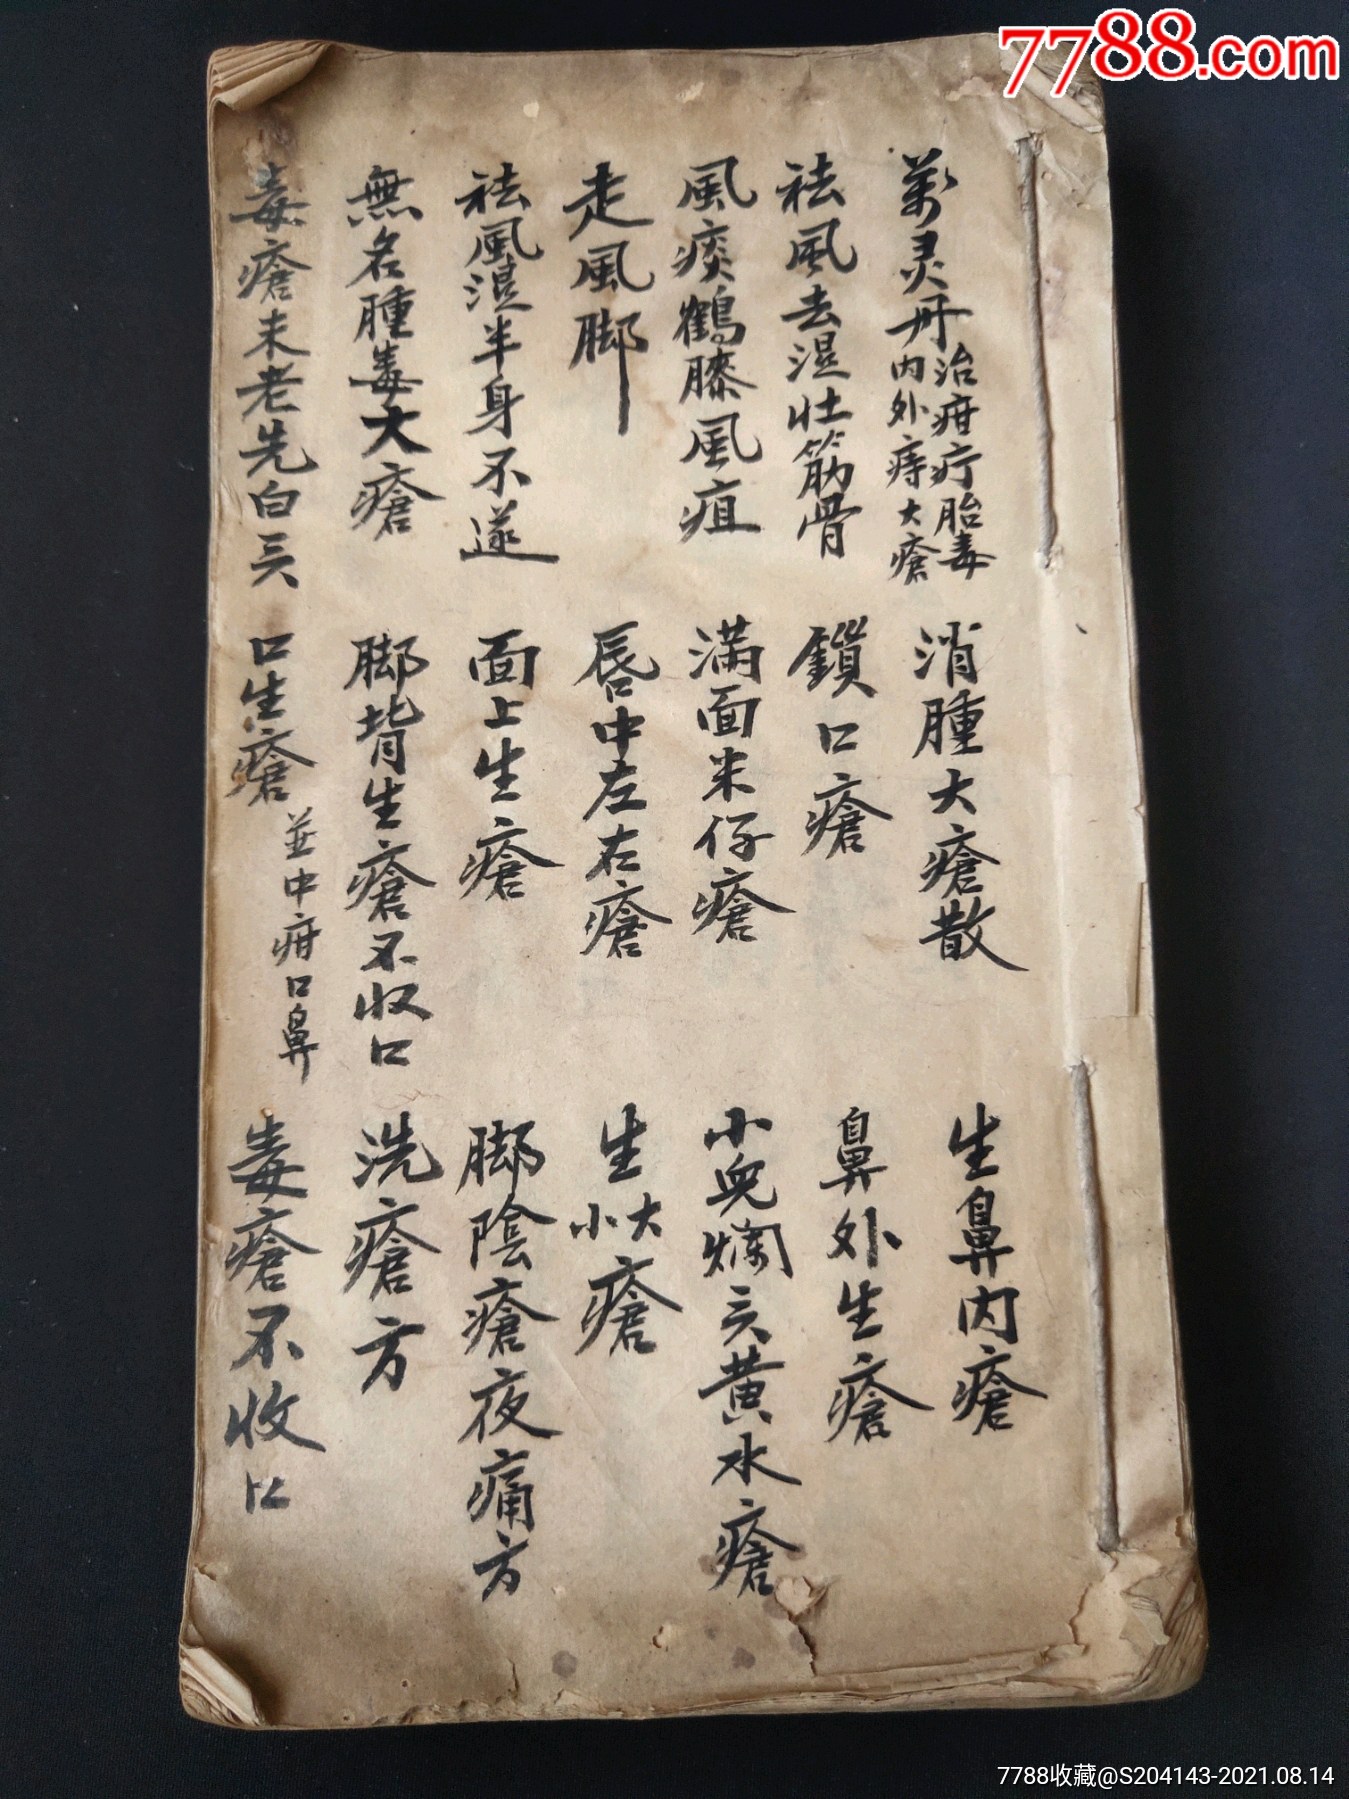 7788.com
萬灵丹 治疳疔胎毒
内外痔大瘡
祛風去濕壯筋骨
風痰鶴膝風疽
走風脚
祛風濕半身不遂
無名腫毒大瘡
毒瘡未老先白头
消腫大瘡散
鎖口瘡
满面米仔瘡
唇中左右瘡
面上生瘡
脚背生瘡不收口
口生瘡
並中疳口鼻
生鼻内瘡
鼻外生瘡
小兒爛头黄水瘡
生大小瘡
脚陰瘡夜痛方
洗瘡方
毒瘡不收口
7788收藏@S204143-2021.08.14